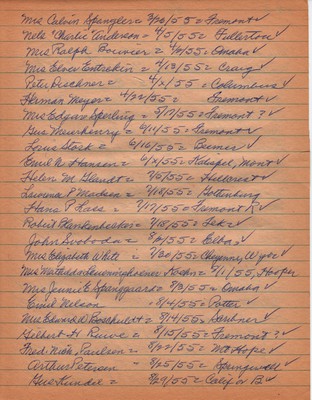 Mrs Calvin Spangler = 3/20/55 = Fremont ✓
Nets "Charlie" Anderson = 4/5/55 = Fullerton ✓
Mrs Ralph Bouvier = 4/9/55 = Omaha ✓
Mrs Elver Entrekin = 4/13/55 = Craig ✓
Peter = 4/ /55 = Columbus ✓
Herman Meyer = 4/22/55 = Fremont ✓
Mrs Edgar Sperling = 5/17/55 = Fremont ? ✓
Gus Meuerhenry = 6/11/55 = Fremont ✓
Stock = 6/16/55 = Beemer ✓
Emil A Hansen = 6/ /55 = Kalispel, Mont ✓
Helen M. Glandt = 7/5/55 = Hillcrest ✓
Laurena P Madsen = 7/15/55 = Gothenburg
Hans P Lass = 7/17/55 = Fremont R ✓
Robert Plankenbecker = 7/18/55 =
John Svoboda = 8/ /55 = Elba ✓
Mrs Elizabeth White = 7/20/55 = Cheyenne Wyo ✓
Mrs 8/1/55, Hooper
Mrs Jennie E Spanggaard = 8/3/55 = Omaha ✓
Emil Nelson - 8/4/55 = Potter ✓
Mrs Edward D Booschult = 8/14/55 = Scribner ✓
Gilbert H Ruwe = 8/15/55 = Fremont ? ✓
Fred Nick Paulsen = 8/22/55 = Mt Hope ✓
Arthur Petersen - 8/25/55 = Springwell ✓
Gus Kundel = 8/29/55 = Calif or B ✓